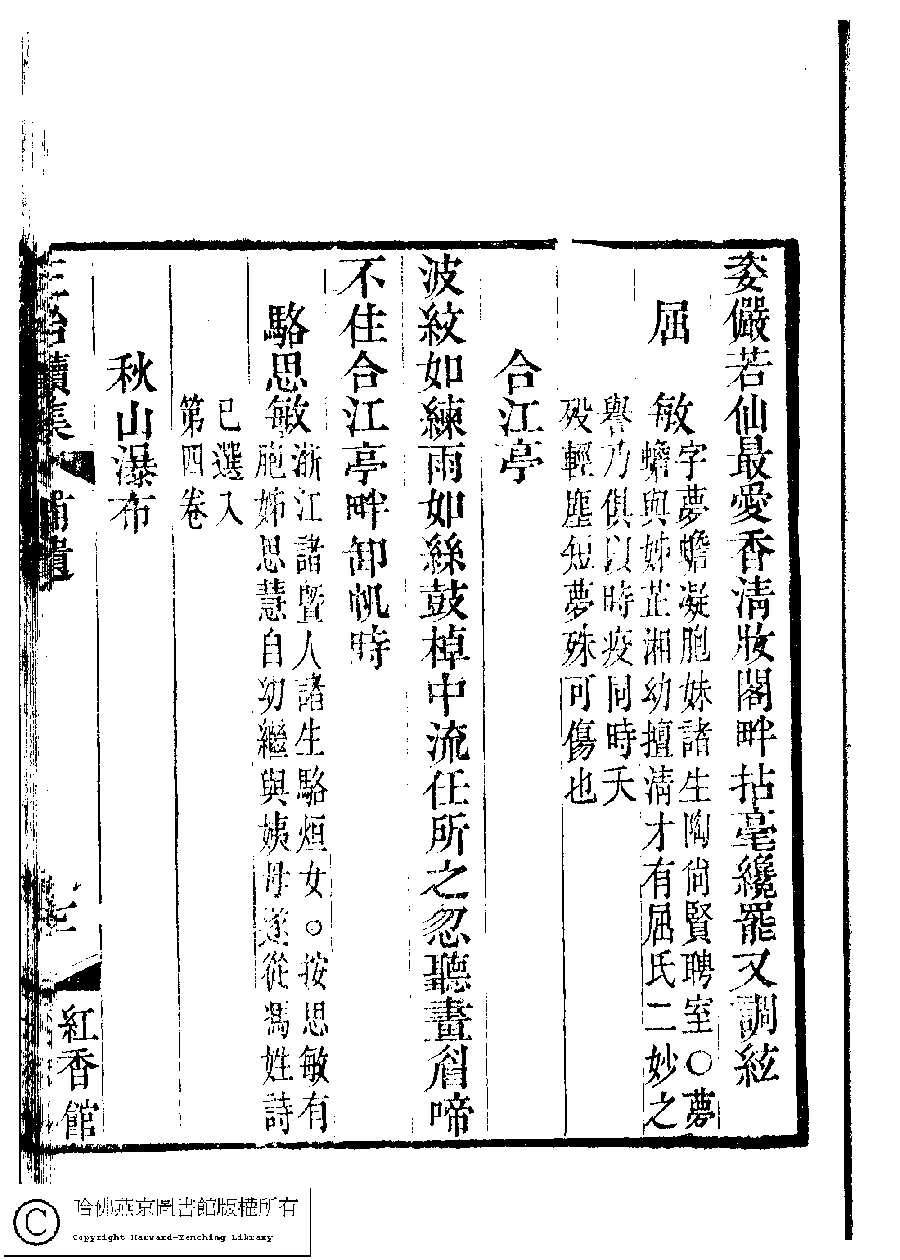 委儼若仙最愛香清妝閣畔拈毫纔罷又調絃
屈　敏
字夢蟾凝胞妹諸生陶尙賢聘室○夢
蟾與姊芷湘幼擅清才有屈氏二妙之
譽乃俱以時疫同時夭
歿輕塵短夢殊可傷也
合江亭
波紋如練雨如絲鼓棹中流任所之忽聽畫眉啼
不住合江亭畔卸帆時
駱思敏
浙江諸暨人諸生駱烜女○按思敏有
胞姊思慧自幼繼與姨母遂從馮姓詩
已選入
第四卷
秋山瀑布
續集
補遺
三
紅香館
哈佛燕京圖書館版權所有
Copyright Harvard-Yenching Library